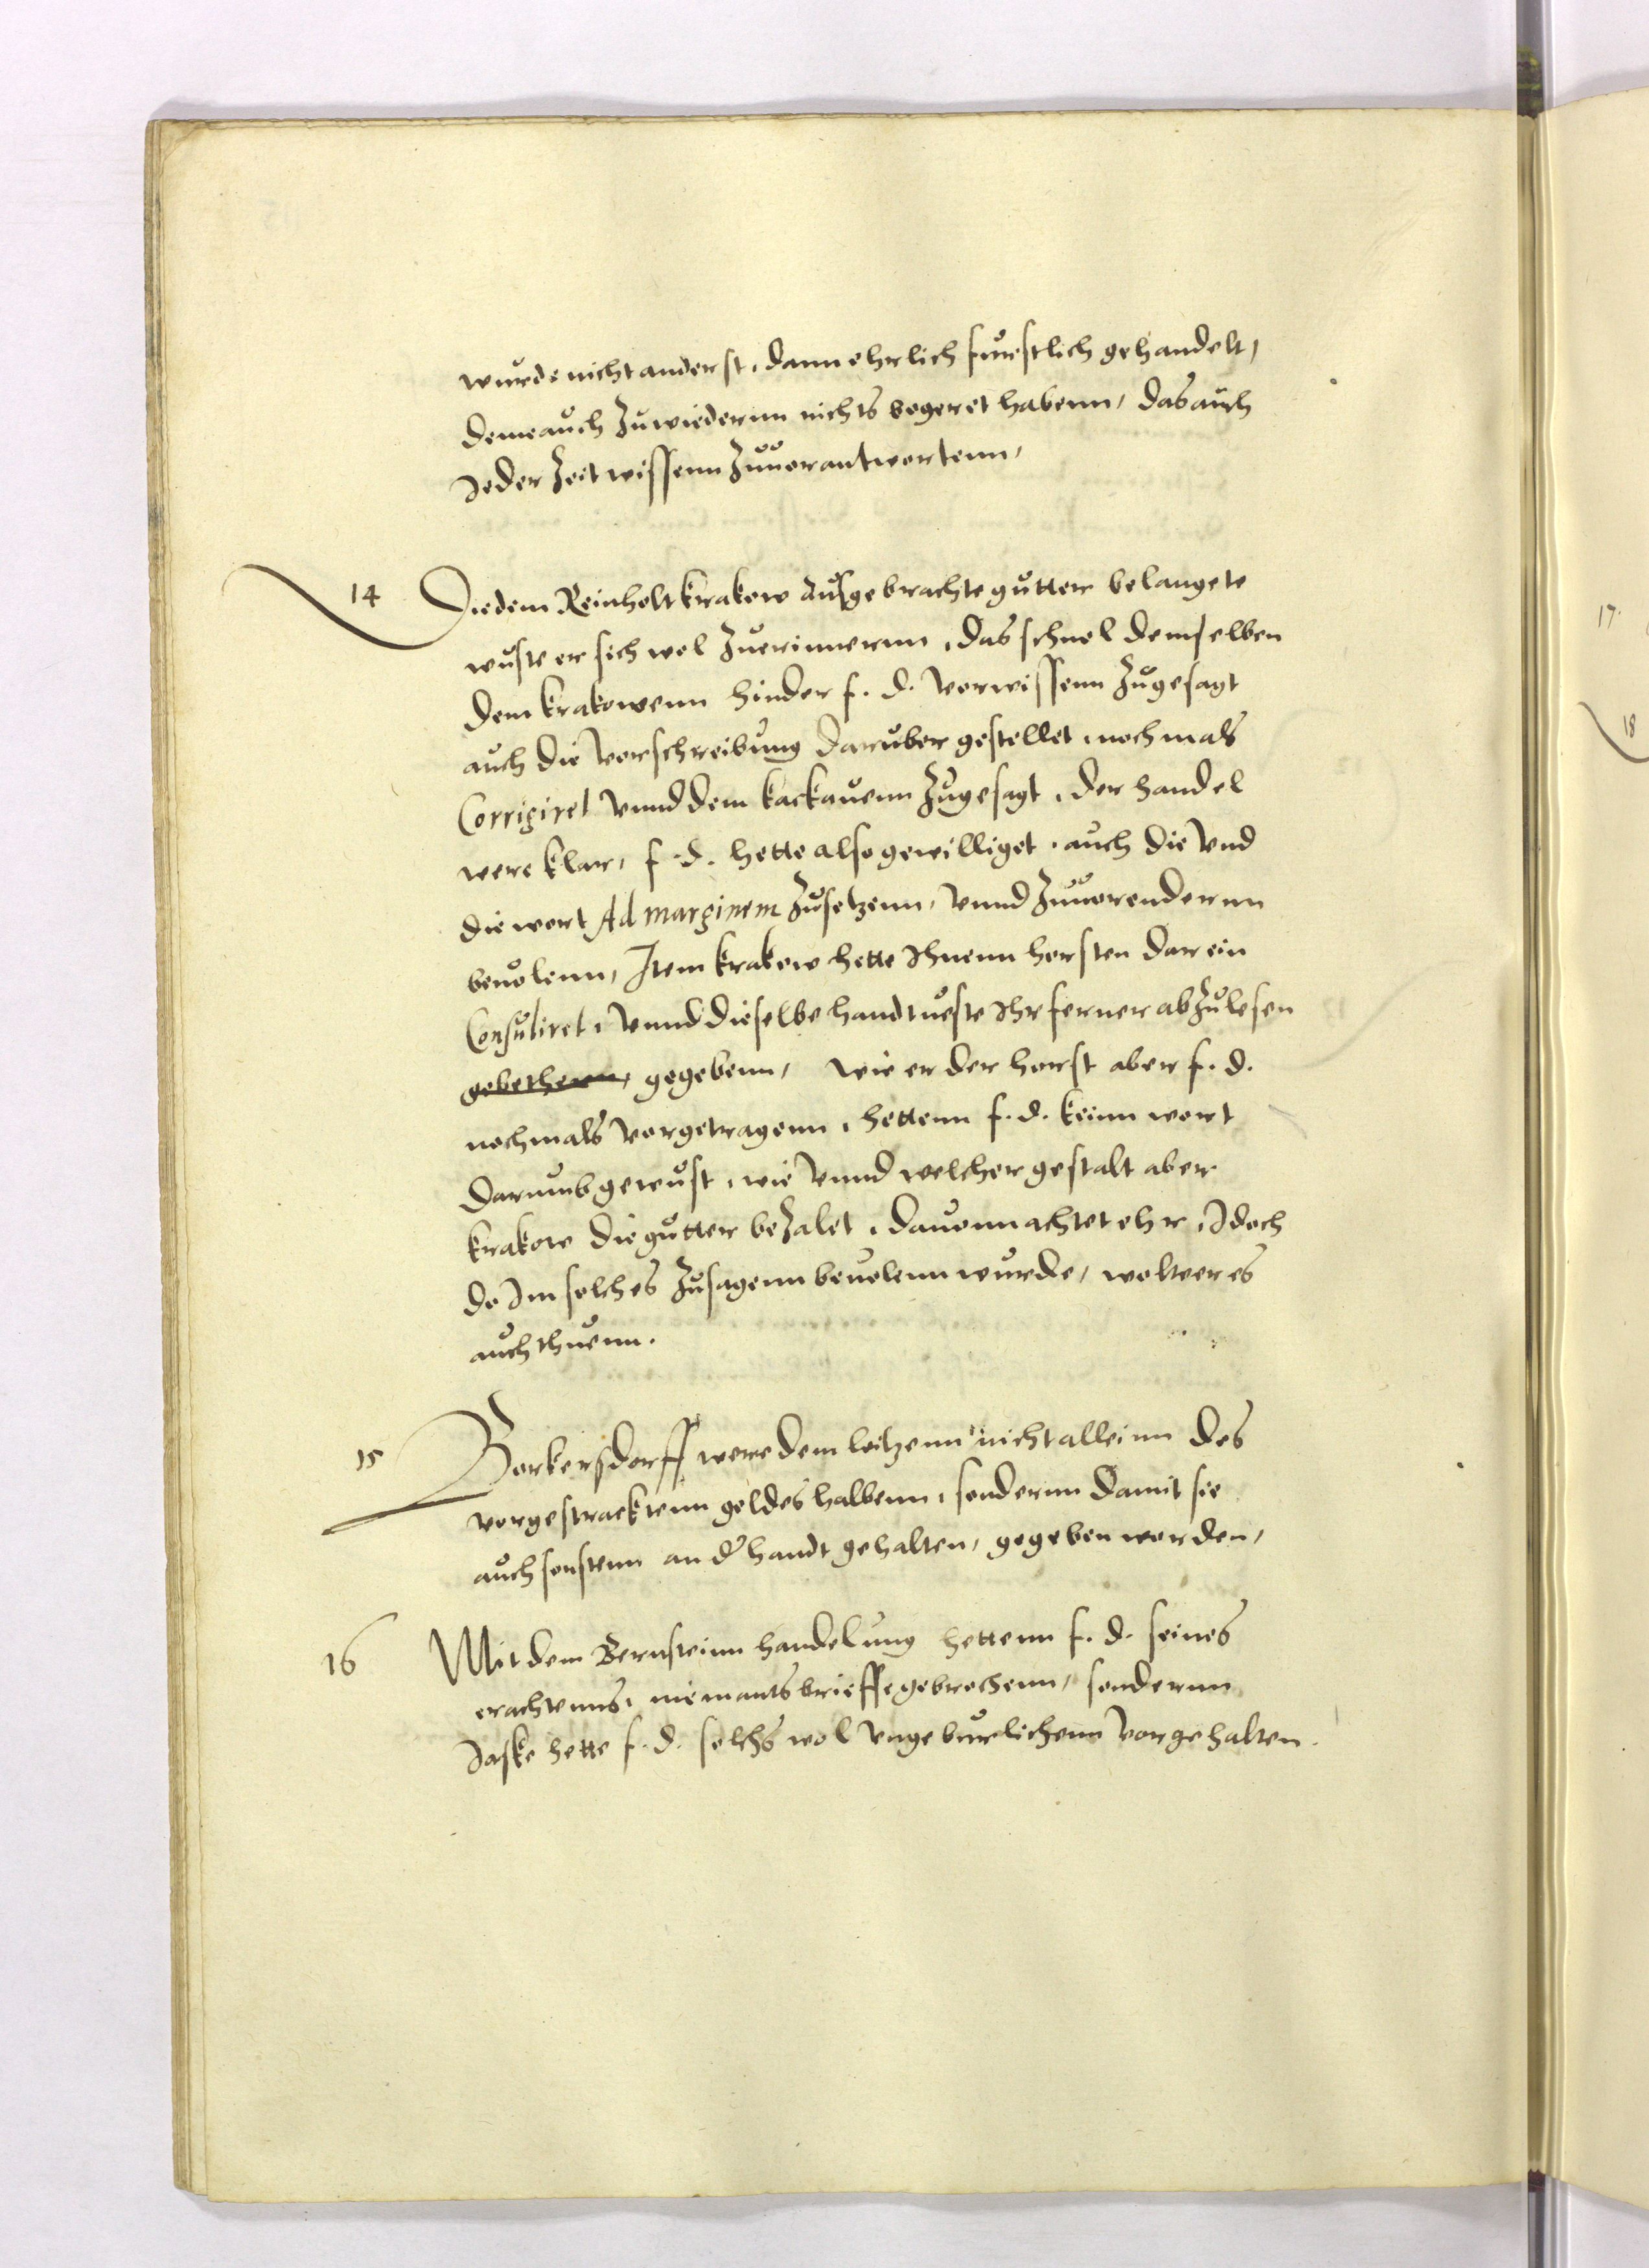 wurde nicht anderst, dann ehrlich furstlich gehandelt,
deme auch zuwiedernn nichts begeret habenn, das auch
Jeder Zeit wissenn zuuorantwortenn,
14 Die dem Reinholt krakow außgebrachte gutter belangete
wuste er sich wol zuerinnernn, das schnel demselben
dem krakowenn hinder f. d. vorwissenn zugesagt
auch die vorschreibung daruber gestellet, nochmals
Corrigiret vnnd dem kackauenn zugesagt, der handel
were klar, f. d. hette also gewilliget, auch die vnd
die wort Ad marginem zusetzenn, vnnd zuuorendernn
beuolenn, Item krakow hette Ihnenn horsten darein
Consuliret, vnnd dieselbe handtueste Ihr ferner abzulesen
gebethenn, gegebenn, wie er der horst aber f. d.
nochmals vorgetragenn, hettenn f. d. keinn wort
darumb gewust, wie vnnd welcher gestalt aber
krakow die gutter bezalet, dauonn achtet ehr, Idoch
do Im solches zusagenn beuolenn wurde, wolt er es
auch thuenn.
15 Borkersdorff were dem loitzenn nicht alleinn des
vorgestracktenn geldes halbenn, sondernn damit sie
auch sonstenn an d' handt gehalten, gegeben worden,
16 Mit dem Bernsteinn handelung hettenn f. d. seines
erachtenns, niemants brieffe gebrochenn, sondernn
Jaske hette f. d. solchs wol vngeburlichenn vorgehalten.
17.
18